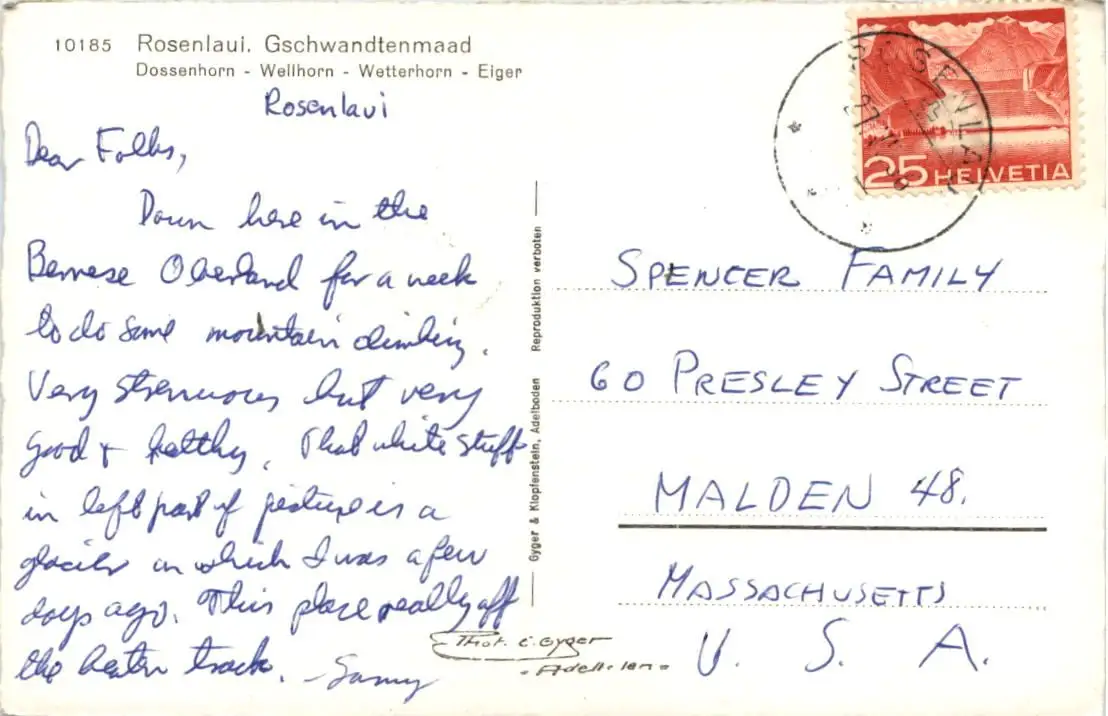 10185 Rosenlaui. Gschwandtenmaad
Dossenhorn - Wellhorn - Wetterhorn - Eiger
Rosenlaui
Dear Folks,
Down here in the
Bernese Oberland for a week
to do some mountain climbing.
Very strenuous but very
good & healthy. That white stuff
in left part of picture is a
glacier on which I was a few
days ago. This place really off
the beaten track. - Sammy
Gyger & Klopfenstein, Adelboden Reproduktion verboten
Phot. E. Gyger
Adelboden
ROSENLAUI
25 HELVETIA
SPENCER FAMILY
60 PRESLEY STREET
MALDEN 48.
MASSACHUSETTS
U. S. A.